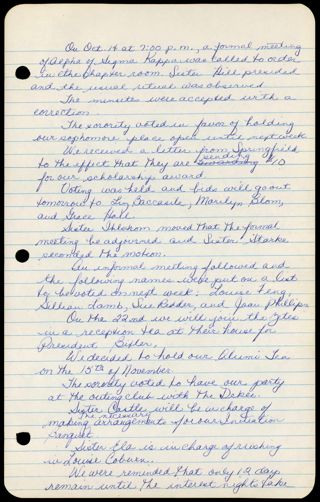 On Oct. 14 at 7:00 p.m., a formal meeting
of Alpha of Sigma Kappa was called to order
in the chapter room. Sister Hill presided
and the usual ritual was observed.
The minutes were accepted with a
correction.
The sorority voted in favor of holding
our sophomore place open until next week.
We received a letter from Springfield
to the effect that they are sending $10
for our scholarship award.
Voting was held and bids will go out
tomorrow to Liz Baccaste, Marilyn Blom,
and Grace Hall.
Sister moved that the formal
meeting be adjourned and Sister Starke
seconded the motion.
An informal meeting followed and
the following names were put on a list
to be voted on next week: Louise
Lamb, Sue Redder, and Joan Phillips.
On the 22nd we will join the Zetes
in a reception tea at their house for
President Bixler.
We decided to hold our Alumni Tea
on the 15th of November.
The sorority voted to have our party
at the outing club with the Dekes.
Sister Castle will be in charge of
making the necessary arrangements for our Initiation
Banquet.
Sister Ela is in charge of rushing
in Louise Coburn.
We were reminded that only 12 days
remain until the interest nights take